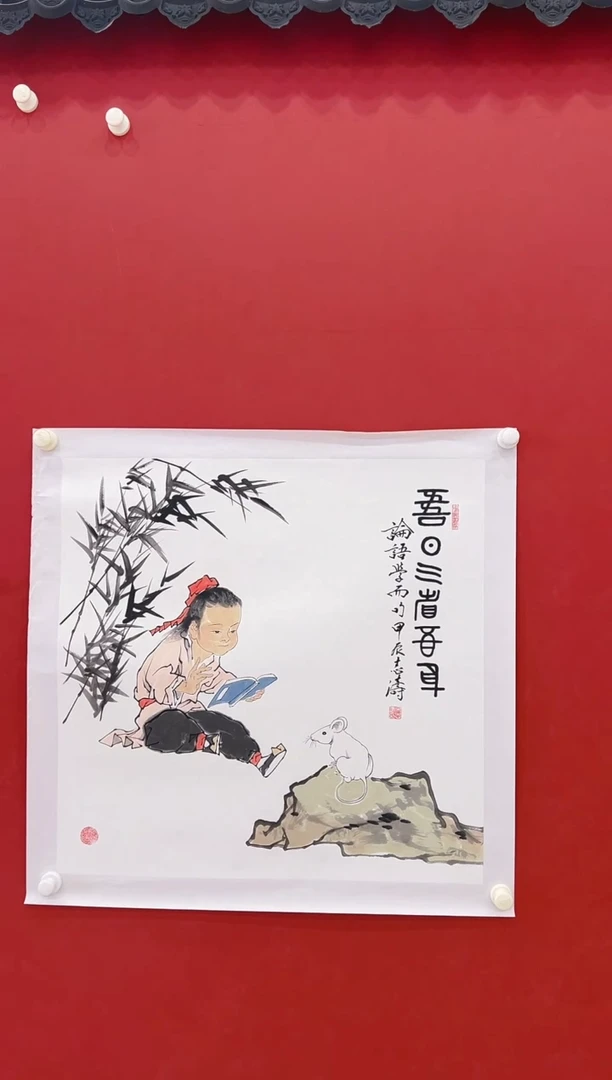 吾日三省吾身
論語學而句甲辰志濤